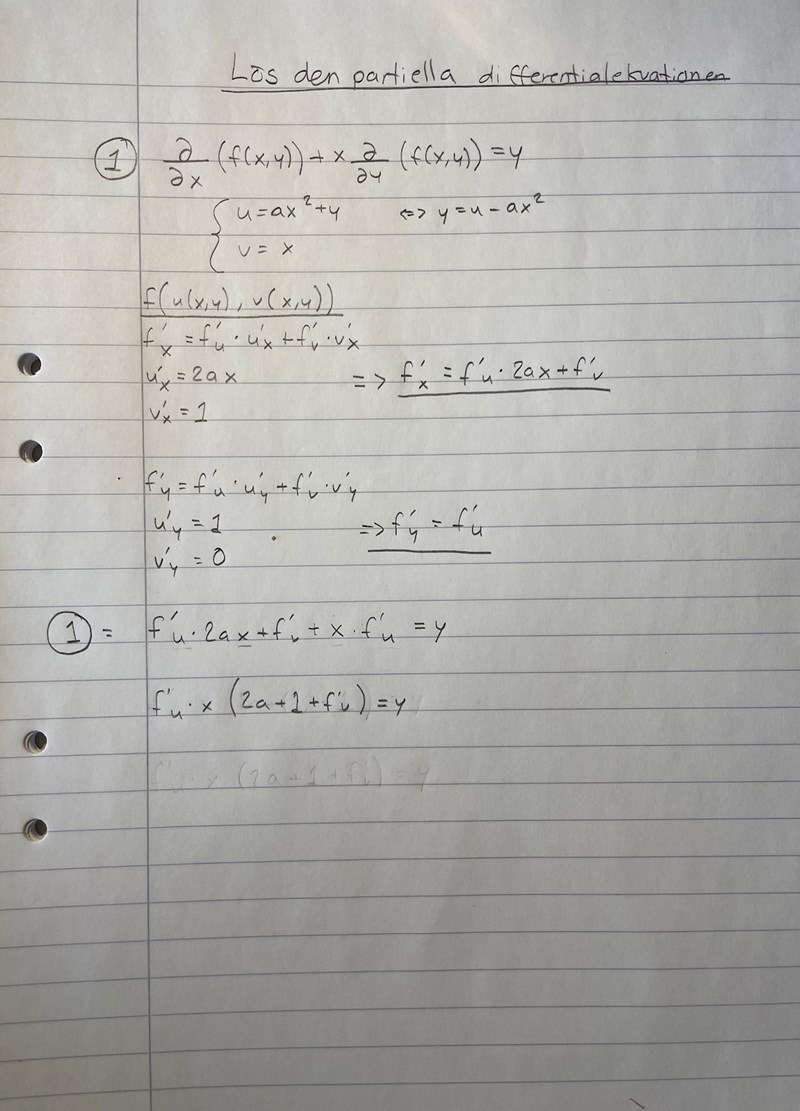 Lös den partiella differentialekvationen
① ∂/∂x (f(x,y)) + x ∂/∂y (f(x,y)) = y
{ u = ax² + y <=> y = u - ax²
v = x
f(u(x,y), v(x,y))
f'x = f'u · u'x + f'v · v'x
u'x = 2ax => f'x = f'u · 2ax + f'v
v'x = 1
f'y = f'u · u'y + f'v · v'y
u'y = 1 => f'y = f'u
v'y = 0
① = f'u · 2ax + f'v + x · f'u = y
f'u · x (2a + 1 + f'v) = y
f'u · x (2a + 1 + f'v) = y